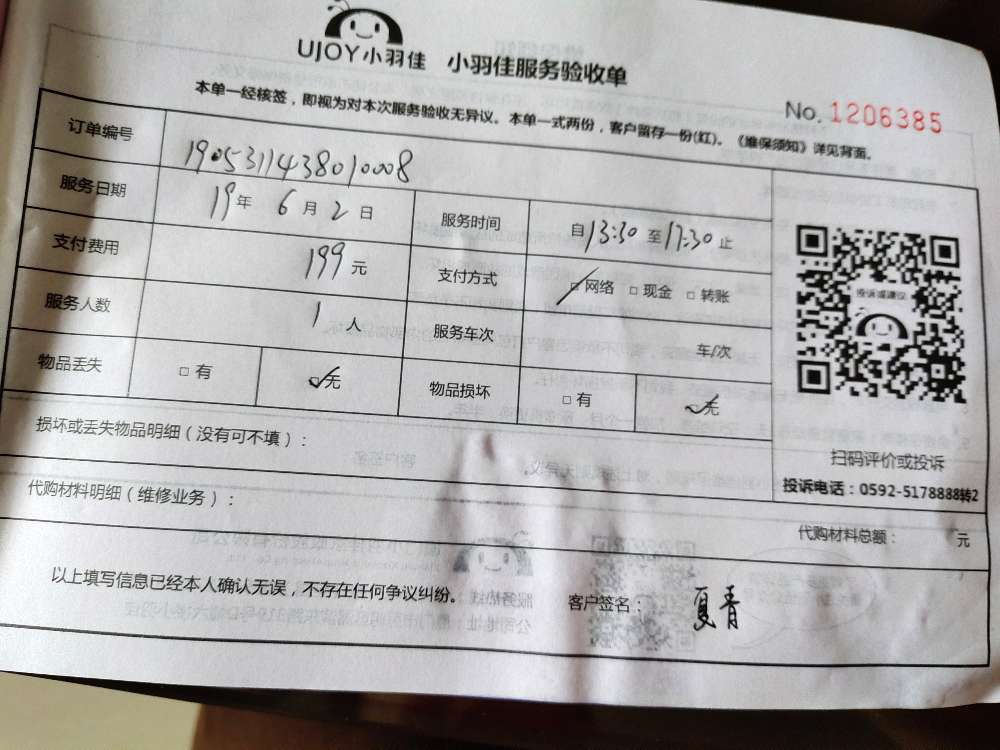 UJOY小羽佳 小羽佳服务验收单
No. 1206385
本单一经核签，即视为对本次服务验收无异议。本单一式两份，客户留存一份(红)。《维保须知》详见背面。
订单编号 1905311438010008
服务日期 19年 6月 2日 服务时间 自13:30至17:30止
支付费用 199元 支付方式 □网络 □现金 □转账
服务人数 1人 服务车次 车/次
物品丢失 □有 ☑无 物品损坏 □有 ☑无
投诉或建议
扫码评价或投诉
投诉电话：0592-5178888转2
损坏或丢失物品明细（没有可不填）：
代购材料明细（维修业务）：
代购材料总额： 元
以上填写信息已经本人确认无误，不存在任何争议纠纷。 客户签名： 夏青